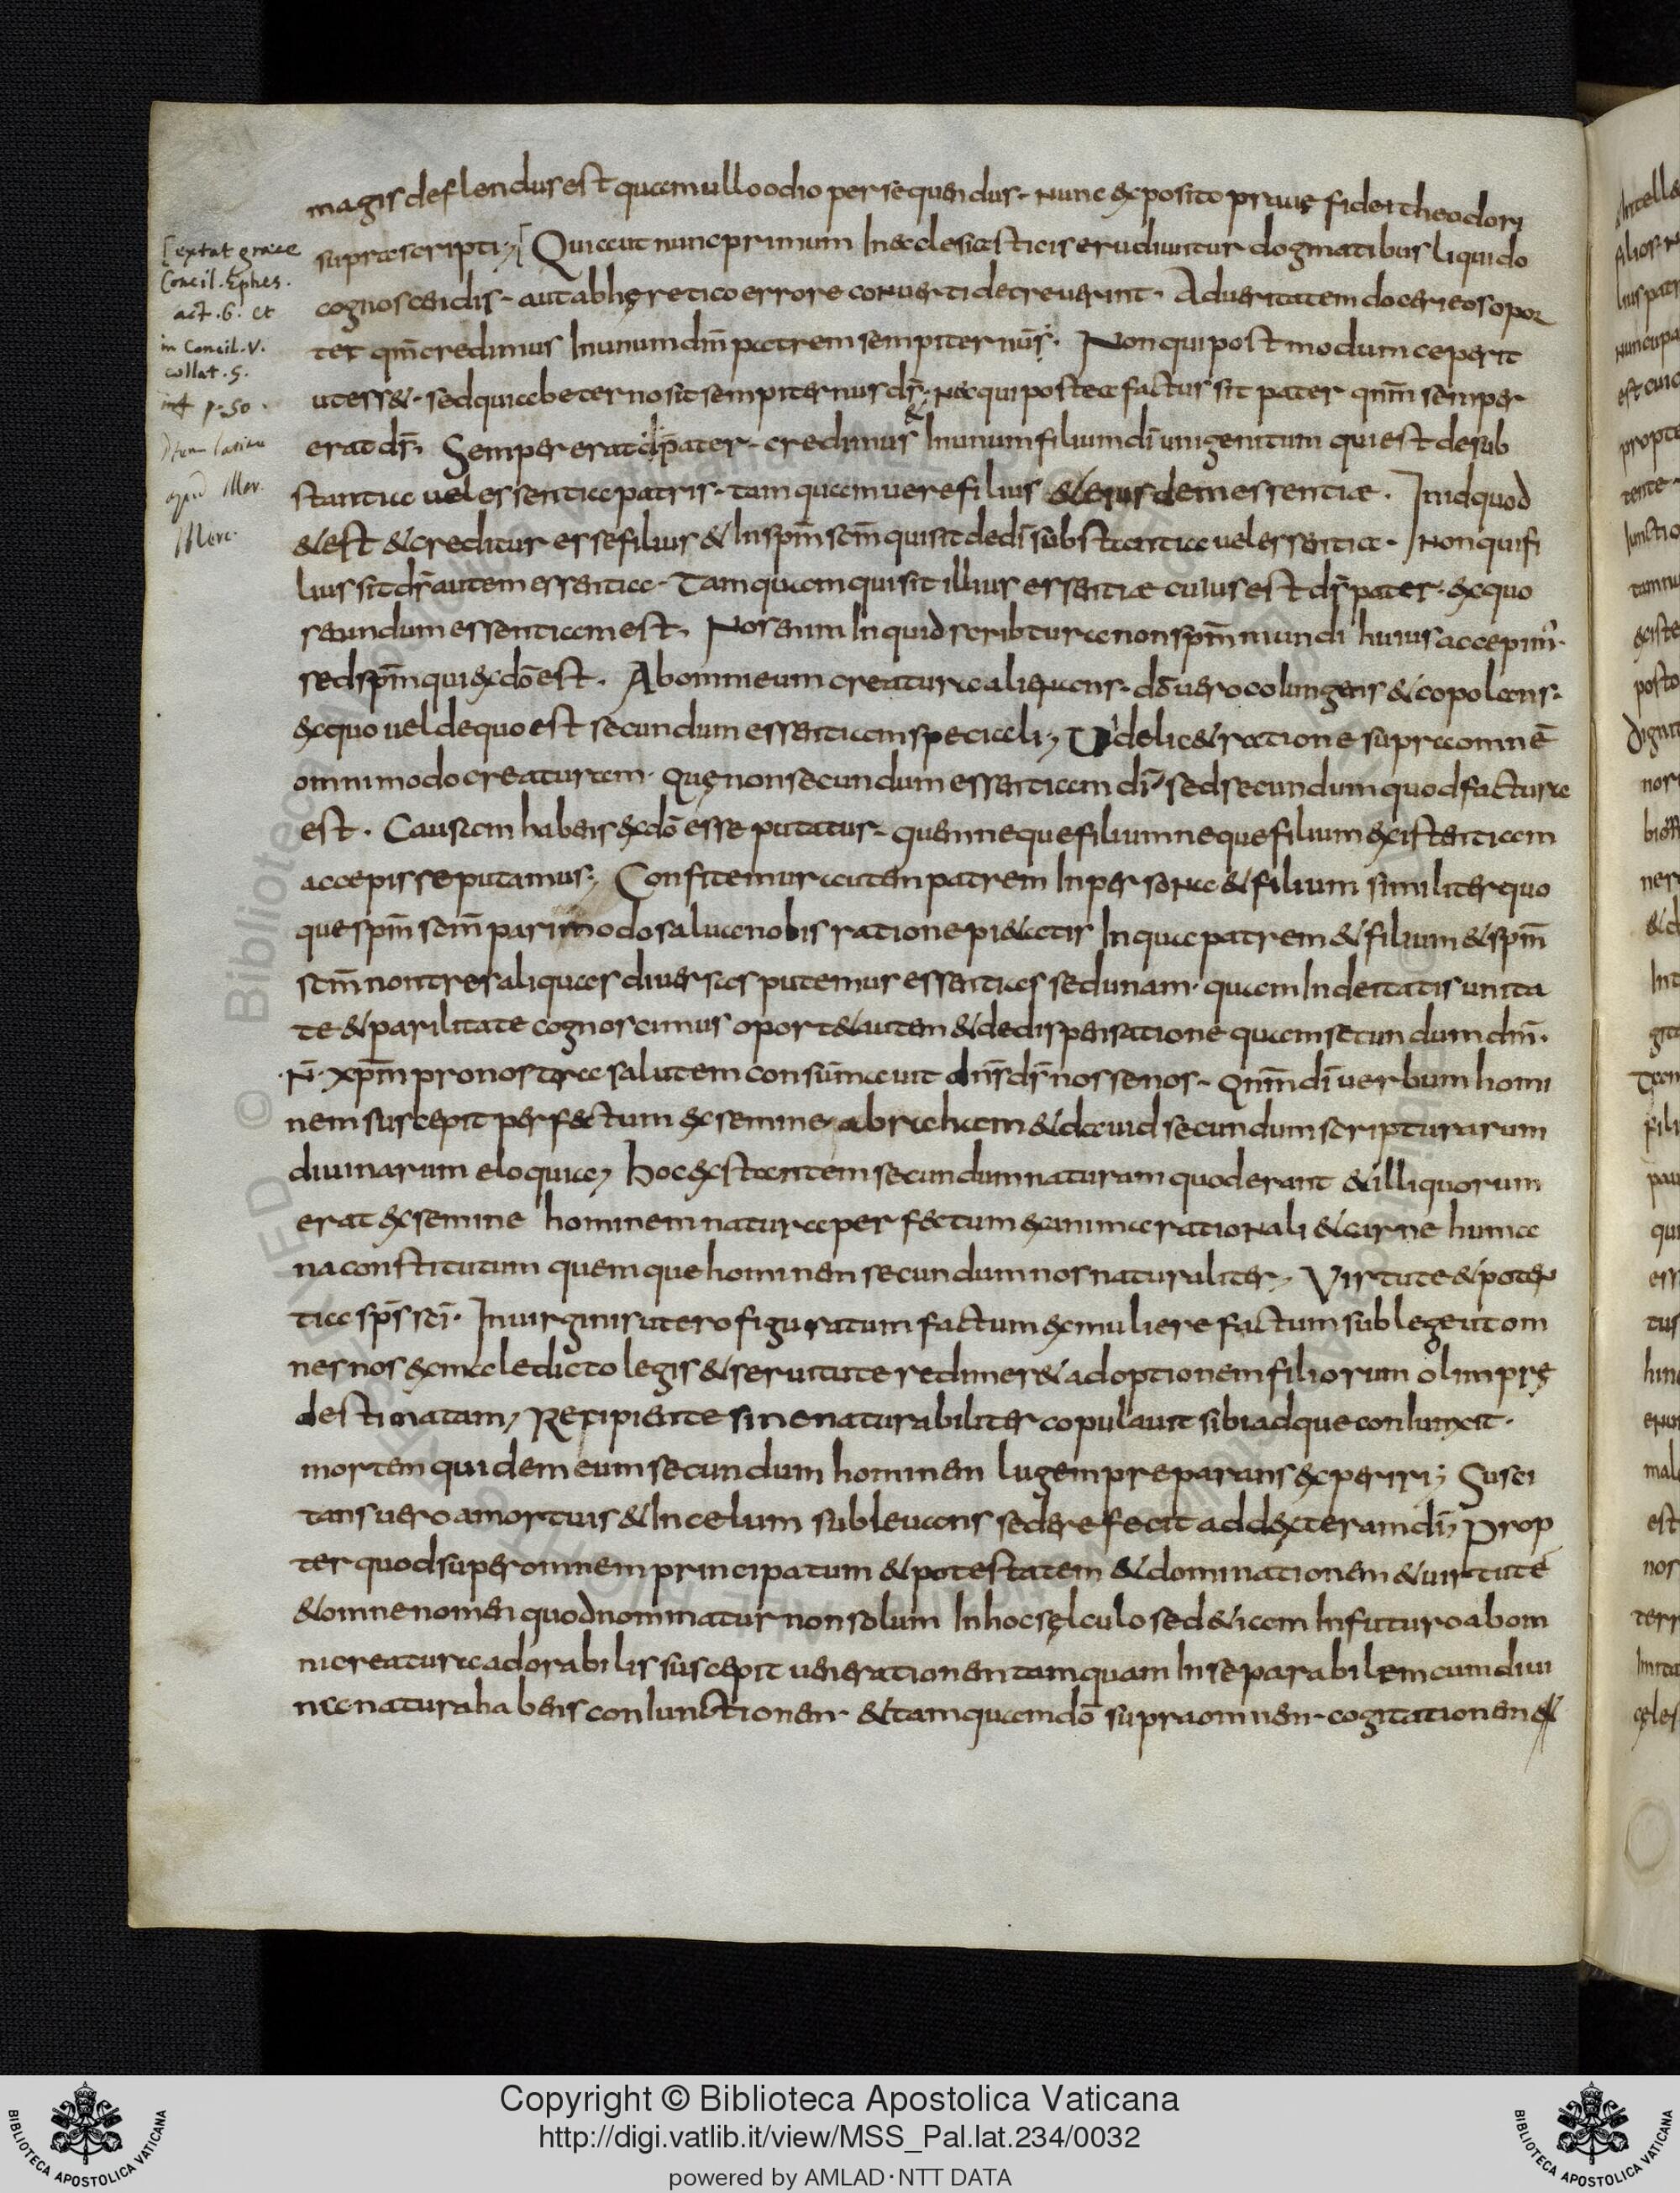 magis deflendus est quam ullo odio persequendus. Nunc exposito prauę fidei theodori
suprascripti; [Qui aut nunc primum In ecclesiasticis erudiuntur dogmatibus liquido
cognoscendis. aut ab hęretico errore conuerti decreuerint. Ad ueritatem doceri eos opor
tet qm̄ credimus In unum dm̄ patrem sempiternū. Non qui postmodum ceperit
ut ess&. sed qui ab eterno sit sempiternus ds̄; Nec qui postea factus sit pater qnm̄ semper
erat ds̄. Semper erat & pater. credimus & In unum filium dī unigenitum qui est de sub
stantia uel essentia patris. tamquam uere filius & eiusdem essentiae. In id quod
& est & creditur esse filius & In spm̄ scm̄ qui sit de dī substantia uel essentia. Non qui fi
lius sit ds̄ autem essentia. Tamquam qui sit illius essentiae cuius est ds̄ pater. ex quo
secundum essentiam est. Nos enim Inquid scribtura non spm̄ mundi huius accepim'.
sed spm̄ qui ex dō est. Ab omni eum creatura alienans. dō uero coIungens & copolans.
ex quo uel de quo est secundum essentiam speciali; Videlic& ratione supra omnē
omnimodo creaturam. quę non secundum essentiam dī. sed secundum quod factura
est. Causam habens ex dō esse putatur. quem neque filium neque filium existentiam
accepisse putamus; Confitemur autem patrem In persona & filium similiter quo
que spm̄ scm̄ pari modo salua nobis ratione pi&atis In qua patrem & filium & spm̄
scm̄ non tres aliquas diuersas putemus essentias sed unam. quam In deitatis unita
te & parilitate cognoscimus oport& autem & de dispensatione quam secundum dnm̄.
.N̄. xpm̄ pro nostra salutem consūmauit dns̄ ds̄ nosse nos. Qnm̄ dī uerbum homi
nem suscepit perfectum ex semine abraham & dauid secundum scripturarum
diuinarum eloquia; hoc existentem secundum naturam quod erant & illi quorum
erat ex semine hominem natura perfectum ex anima rationali & carne huma
na constitutum quemque hominem secundum nos naturaliter; Virtute & poten
tia sps̄ scī. In uirginis utero figuratum factum ex muliere factum sub lege ut om
nes nos ex maledicto legis & seruitute redimer& adoptionem filiorum olim prę
destinatam; Recipiente sine naturabiliter copulauit sibi adque coniunxit.
mortem quidem eum secundum hominem lugem preparans experiri; Susci
tans uero a mortuis & In celum subleuans sedere fecit ad dexteram dī; Prop
ter quod super omnem principatum & potestatem & dominationem & uirtutē
& omne nomen quod nominatur non solum In hoc sęlculo sed &iam In futuro ab om
ni creatura adorabilis suscepit uenerationem tamquam Inseparabilem cum diui
na natura habens conIunctionem & tamquam dō supra omnem cogitationem &
[extat graece
Concil. Ephes.
act. 6. et
in Concil. V.
collat. 5.
p. 50.
Item latine
apud Mar.
Merc.
Copyright © Biblioteca Apostolica Vaticana
http://digi.vatlib.it/view/MSS_Pal.lat.234/0032
powered by AMLAD·NTT DATA
BIBLIOTECA APOSTOLICA VATICANA
BIBLIOTECA APOSTOLICA VATICANA